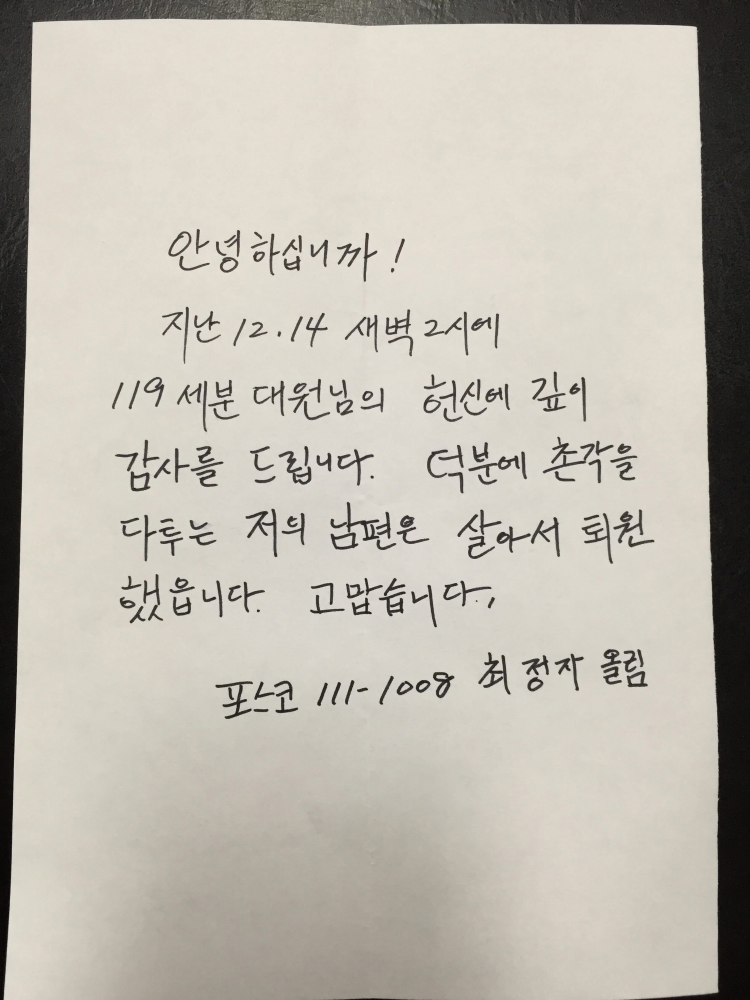 안녕하십니까!
지난 12.14 새벽 2시에
119 세분 대원님의 헌신에 깊이
감사를 드립니다. 덕분에 촌각을
다투는 저의 남편은 살아서 퇴원
했읍니다. 고맙습니다.,
포스코 111-1008 최정자 올림